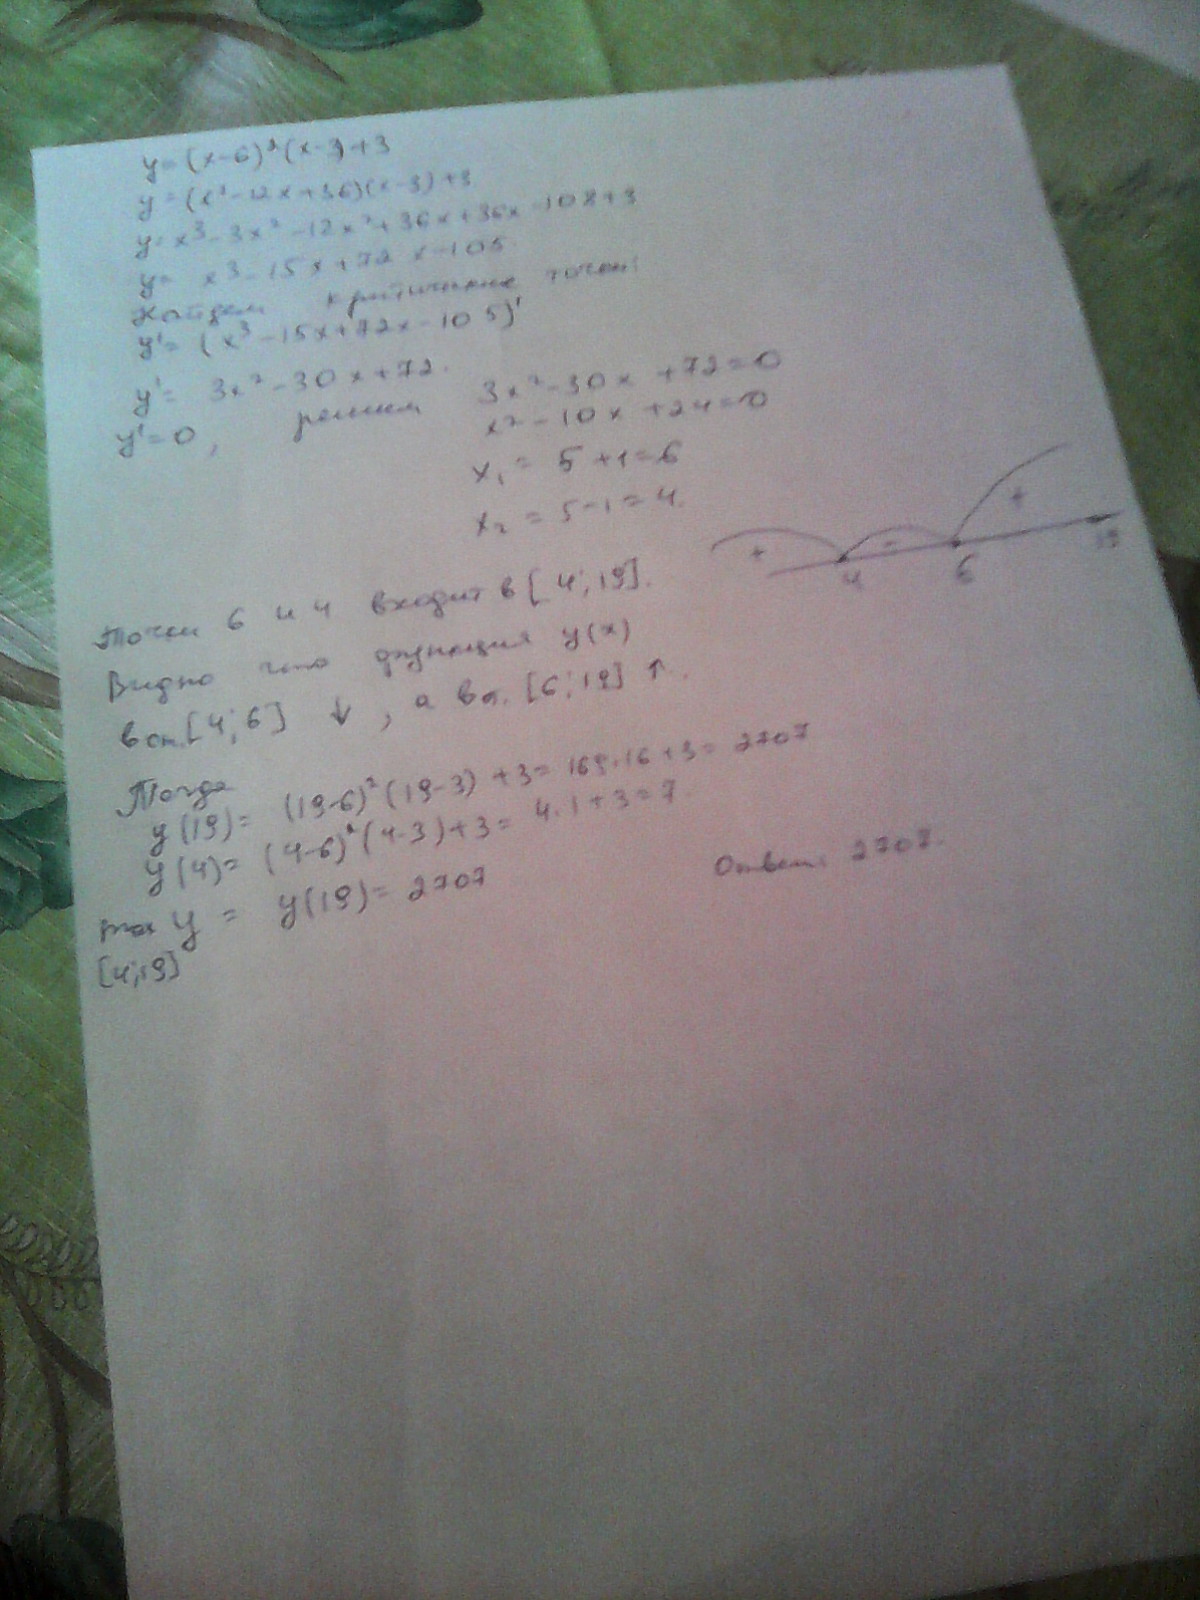 y=(x-6)²(x-3)+3
y=(x²-12x+36)(x-3)+3
y=x³-3x²-12x²+36x+36x-108+3
y= x³-15x+72x-105
Найдем критические точки:
y'= (x³-15x+72x-105)'
y'= 3x²-30x+72.
y'=0, решим 3x²-30x+72=0
x²-10x+24=0
x₁= 5+1=6
x₂=5-1=4.
+ - +
4 6 19
Точки 6 и 4 входит в [4;19].
Видно что функция y(x)
в от.[4;6] ↓, а в от.[6;19] ↑.
Тогда
y(19)= (19-6)²(19-3)+3=169·16+3=2707
y(4)= (4-6)²(4-3)+3= 4·1+3=7.
max y = y(19)=2707
[4;19]
Ответ: 2707.